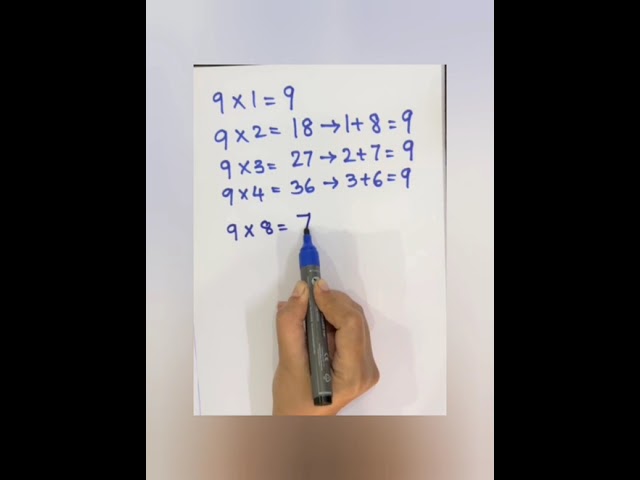 9 × 1 = 9
9 × 2 = 18 → 1 + 8 = 9
9 × 3 = 27 → 2 + 7 = 9
9 × 4 = 36 → 3 + 6 = 9
9 × 8 = 7